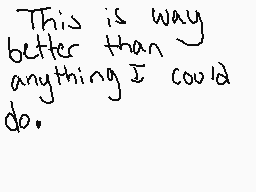 This is way
better than
anything I could
do.